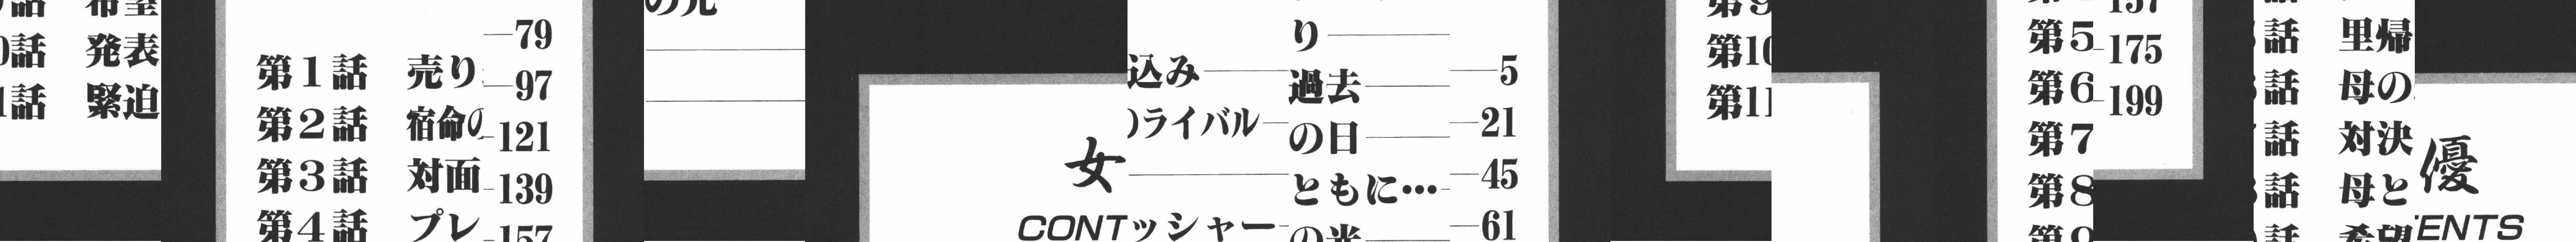 話 希望
話 発表
話 緊迫
第1話 売り
第2話 宿命の
第3話 対面
第4話 プレ
79
97
121
139
157
の光
女
CONT
込み
ライバル
ッシャー
り
過去
の日
ともに…
の光
5
21
45
61
第9
第10
第11
第5
第6
第7
第8
第9
157
175
199
話 里帰
話 母の
話 対決
話 母と
話 希望
優
ENTS